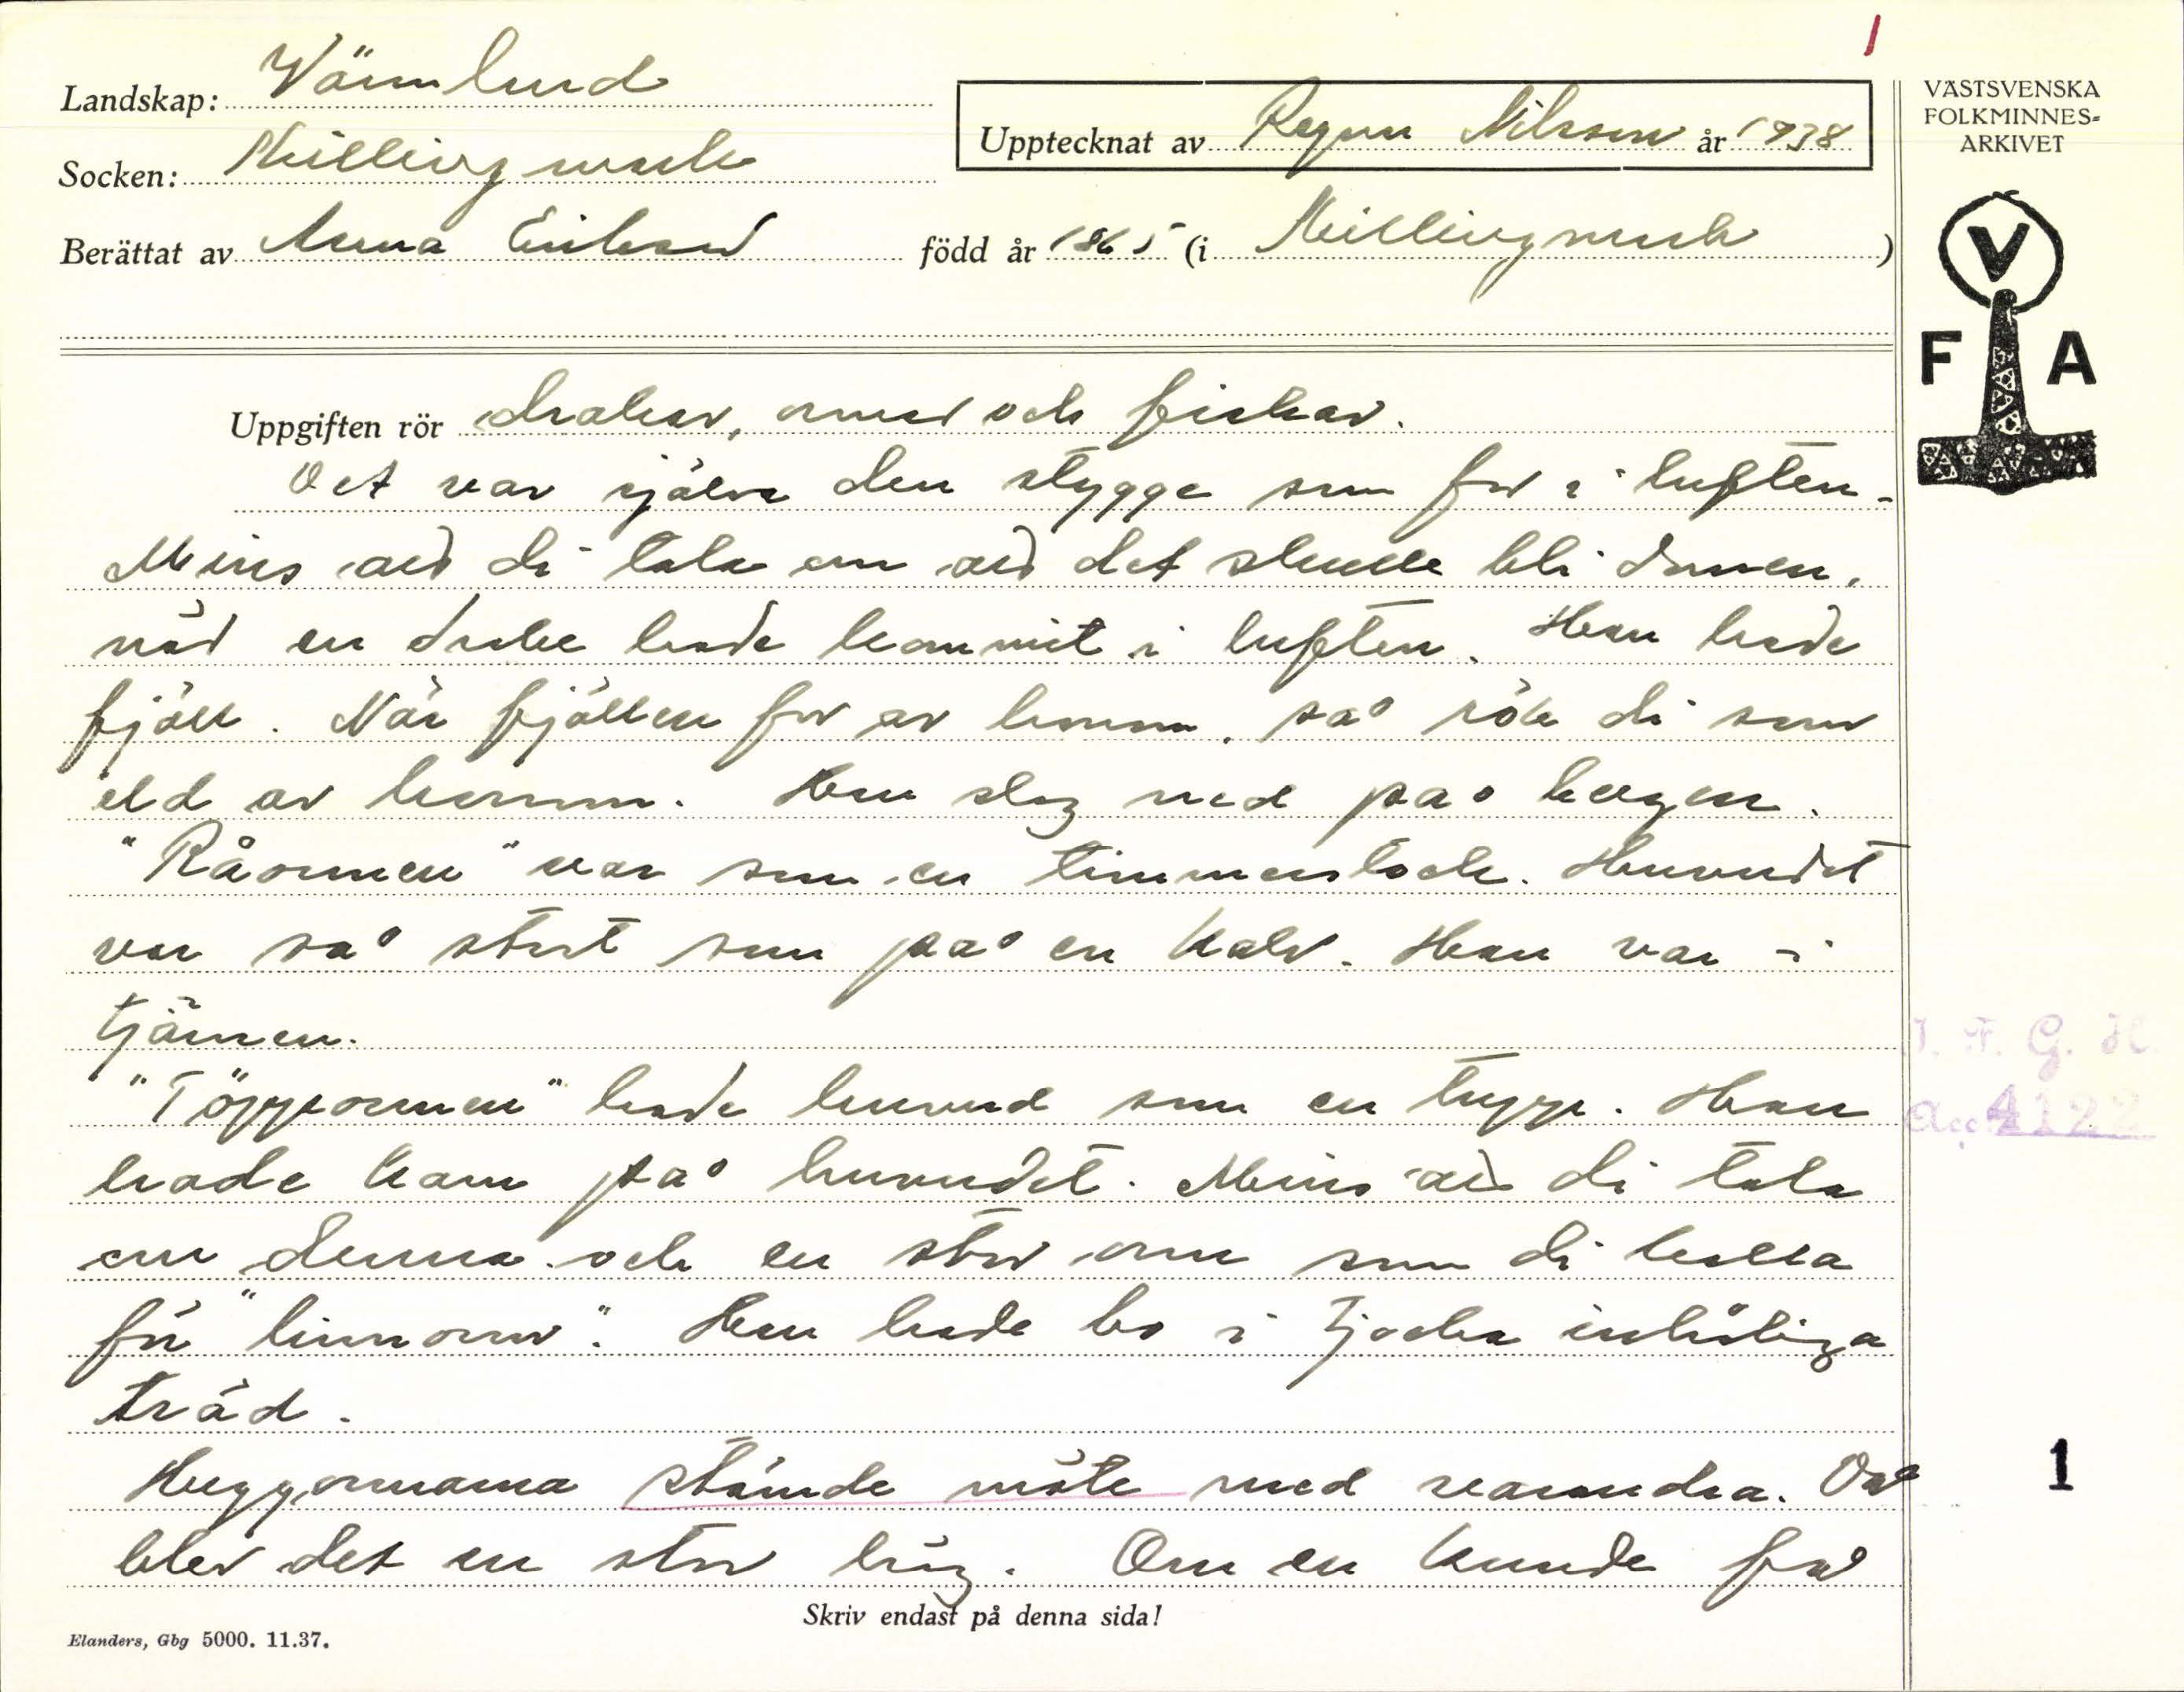 1
Landskap: Värmland
Socken: Skillingmark
Upptecknat av Ragnar Nilsson år 1938
Berättat av Anna Eriksson född år 1865 (i Skillingmark)
VÄSTSVENSKA
FOLKMINNES-
ARKIVET
V
F A
Uppgiften rör drakar, ormar och fiskar.
Det var själva den stygge som for i luften.
Mins att di tala om att det skulle bli
när en drake hade kommit i luften. Han hade
fjäll. När fjällen for av honom, så rök di som
eld av honom. Han slog ned på bergen.
"Råormen" var som en timmerstock. Huvudet
var så stort som på en kalv. Han var i
tjärnen.
"Töppormen" hade huvud som en tupp. Han
hade kam på huvudet. Mins att di tala
om denna och en stor orm som di kalla
för "linnorm". Han hade bo i tjocka inhåliga
träd.
Huggormarna stämde möte med varandra. Då
blev det en stor hög. Om en kunde få
Skriv endast på denna sida!
Elanders, Gbg 5000. 11.37.
I. F. G. H.
Acc. 4122
1